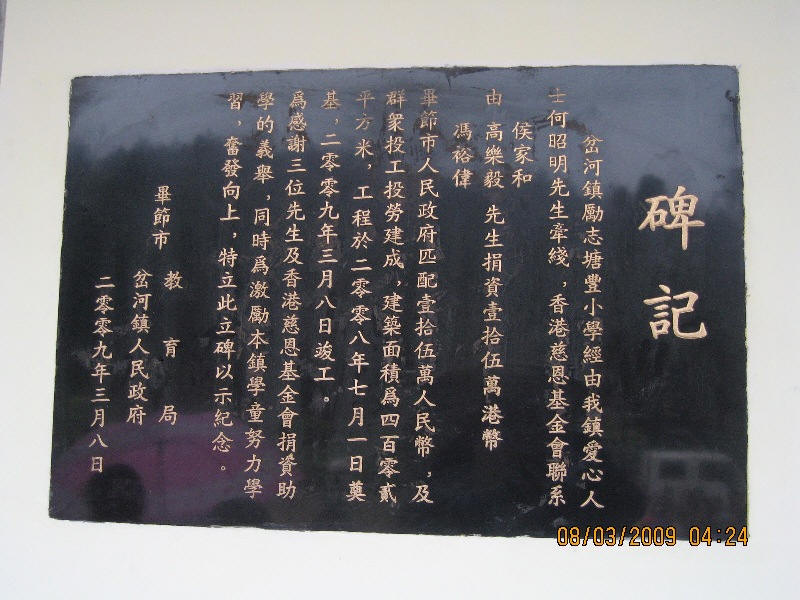 碑記
岔河鎮勵志塘豐小學經由我鎮愛心人
士何昭明先生牽綫，香港慈恩基金會聯系
侯家和
由高樂毅先生捐資壹拾伍萬港幣
馮裕偉
畢節市人民政府匹配壹拾伍萬人民幣，及
群衆投工投勞建成，建築面積爲四百零貳
平方米，工程於二零零八年七月一日奠
基，二零零九年三月八日竣工。
爲感謝三位先生及香港慈恩基金會捐資助
學的義舉，同時爲激勵本鎮學童努力學
習，奮發向上，特立此立碑以示紀念。
畢節市教育局
岔河鎮人民政府
二零零九年三月八日
08/03/2009 04:24